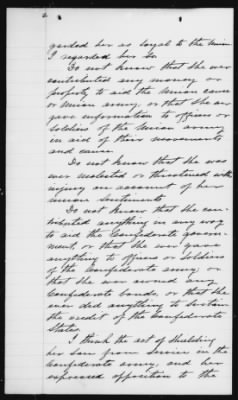 garded her as loyal to the Union
I regarded her so
Do not know that she ever
contributed any money or
property to aid the Union cause
or Union army, or that she ever
gave information to officers or
soldiers of the Union army
in aid of their movements
and cause.
Do not know that she was
ever molested or threatened with
injury on account of her
union sentiments
Do not know that she con-
tributed anything in any way
to aid the Confederate govern-
ment, or that she ever gave
anything to officers or soldiers
of the Confederate army or
that she ever owned any
Confederate bonds, or that she
ever did anything to sustain
the credit of the Confederate
States.
I think the act of shielding
her son from service in the
Confederate army, and her
expressed opposition to the